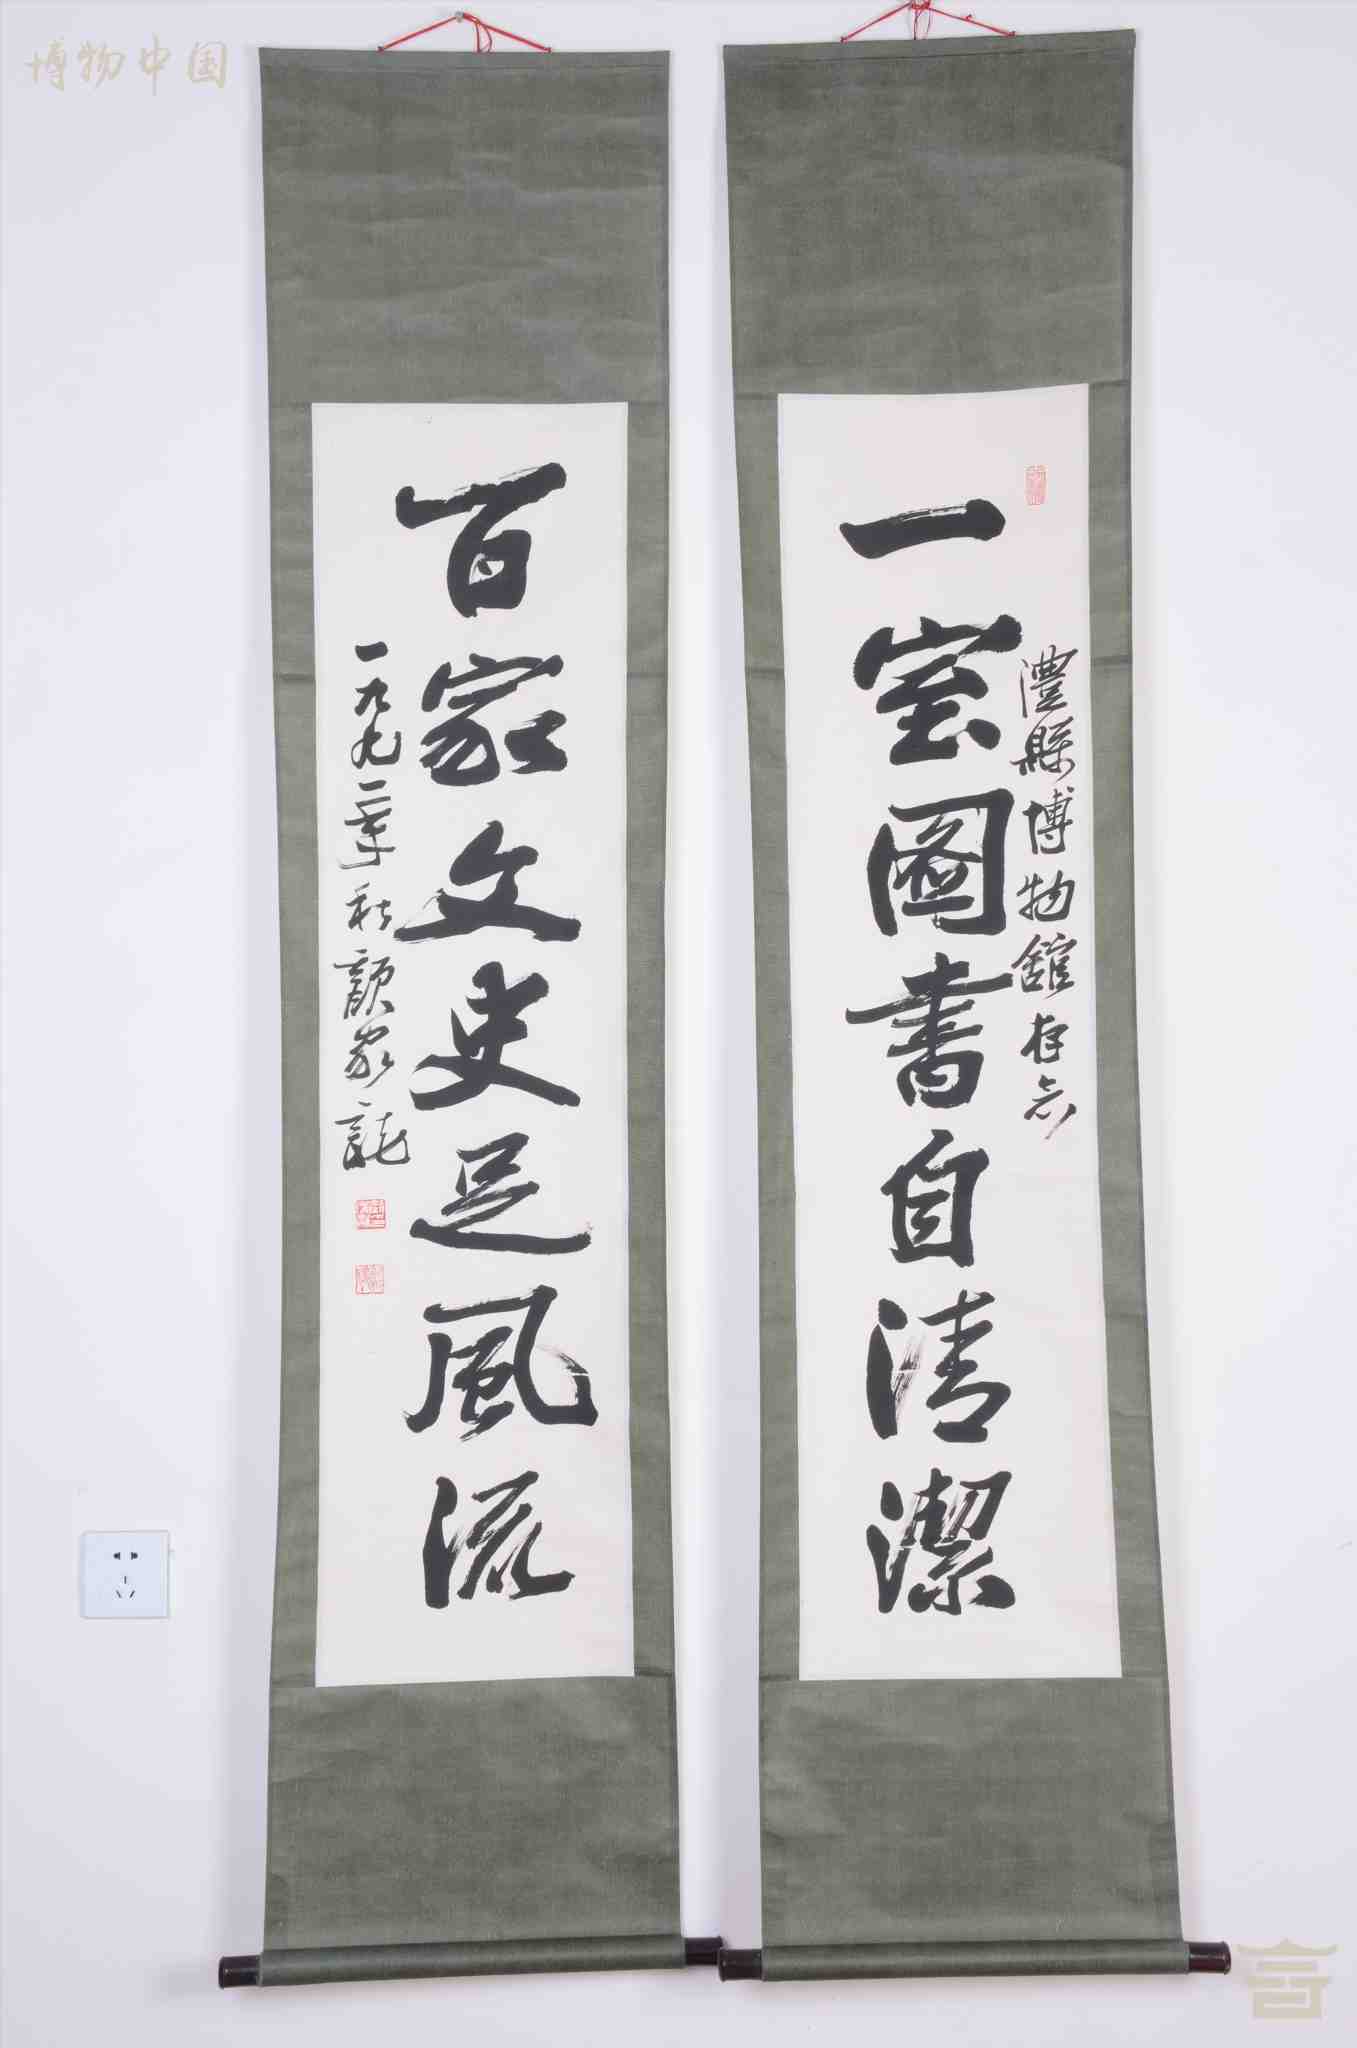 博物中国
澧縣博物館存念
一室圖書自清潔
百家文史足風流
一九九二年秋顏家龍